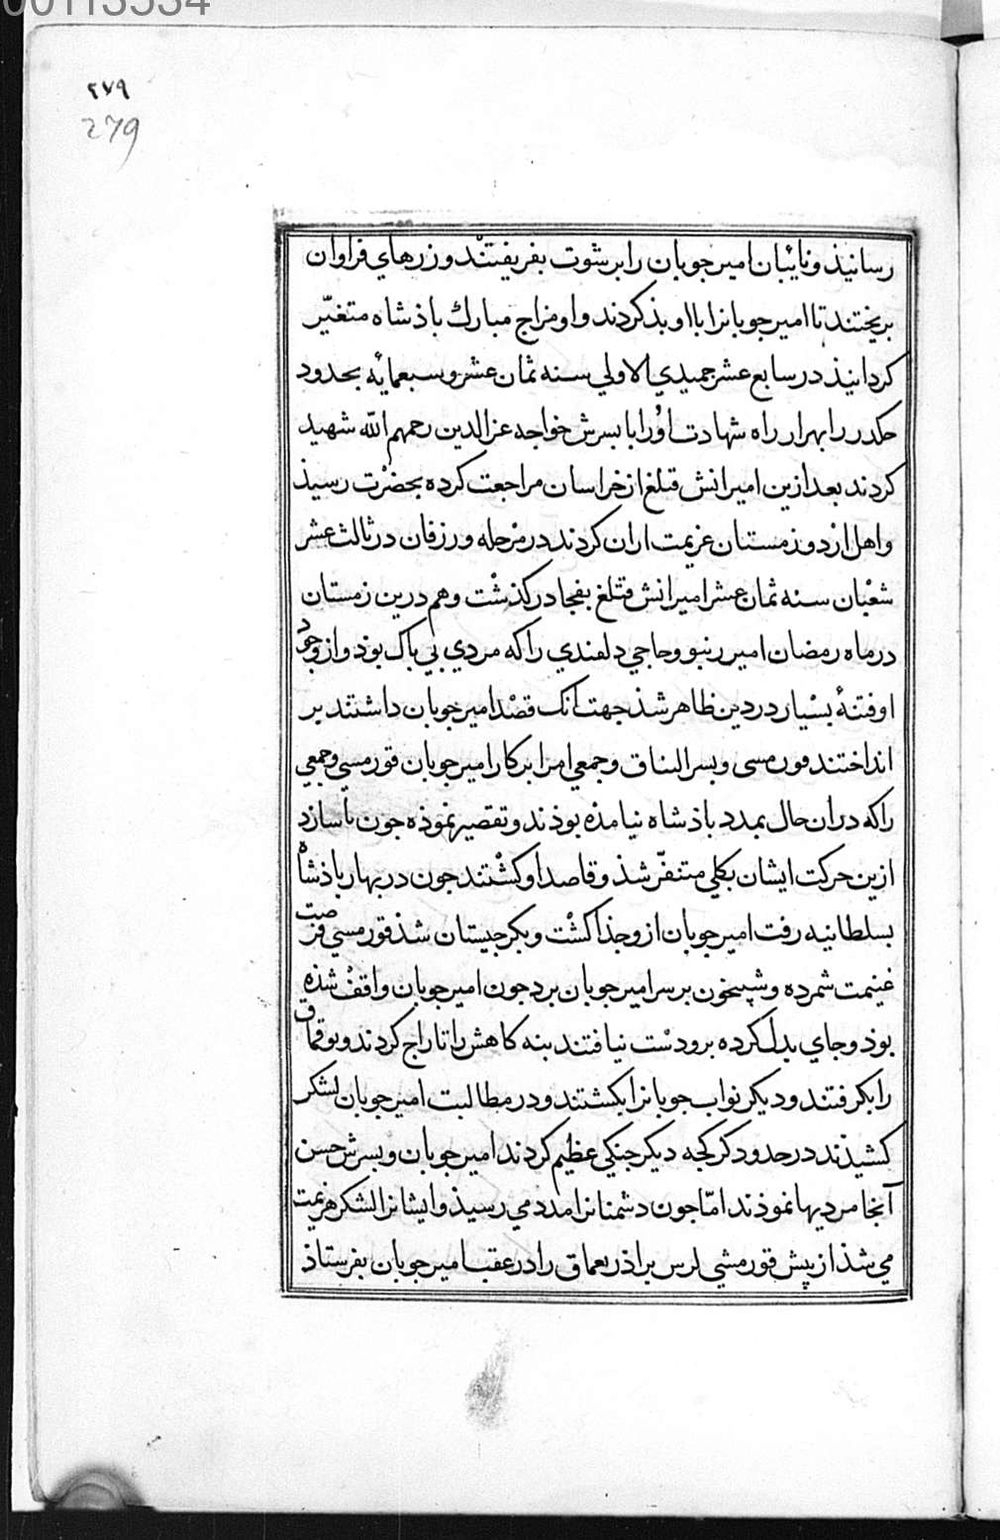 00113534
۲۷۹
279
رسانیذ و نایٔبان امیر جوبان را برشوت بفریفتند و زرهاي فراوان
بریختند تا امیر جوبانرا با او بذ کردند و او مزاج مبارك باذشاه متغیّر
کردانیذ در سابع عشر جمیدي الاولي سنه ثمان عشر و سبعمایٔه بحدود
حکدر را بهرار راه شهادت اوُرا با بسرش خواجه عز الدین رحمهم الله شهید
کردند بعد ازین امیر انش قتلغ از خراسان مراجعت کرده بحضرت رسیذ
و اهل اردو زمستان عزیمت اران کردند در مرحله ورزقان در ثالث عشر
شعبان سنه ثمان عشر امیر انش قتلغ بفجا درکذشت و هم درین زمستان
در ماه رمضان امیر رنبو و حاجي دلفندي را که مردي بي باک بوذ و از وجود
او فتنهٔ بسیار در دین ظاهر شذ جهت آنک قصد امیر جوبان داشتند بر
انداختند قورمسی و بسر الیناق و جمعي امرا بر کار امیر جوبان قورمسي و جمعي
را که در ان حال بمدد باذشاه نیامذه بوذند و تقصیر نموذه جون یاسا زد
ازین حرکت ایشان بکلي متنفّر شذ و قاصد او کشتند جون در بهار باذشاه
بسلطانیه رفت امیر جوبان ازو جذا کشت و بکرجیستان شذ قورمسي فرصت
غنیمت شمرده و شبیخون بر سر امیر جوبان برد جون امیر جوبان واقف شذه
بوذ و جاي بدل کرده برو دست نیافتند بنه کاهش را تاراج کردند و بوقماق
را بکرفتند و دیکر نواب جوبانرا بکشتند و در مطالبت امیر جوبان لشکر
کشیذند در حدود کرکجه دیکر جنکي عظیم کردند امیر جوبان و بسرش حسن
آنجا مردیها نموذند امّا جون دشمنانرا مدد مي رسیذ و ایشانرا لشکر هزیمت
مي شذ از پیش قورمشي لرس براذر بعماق را در عقب امیر جوبان بفرستاذ